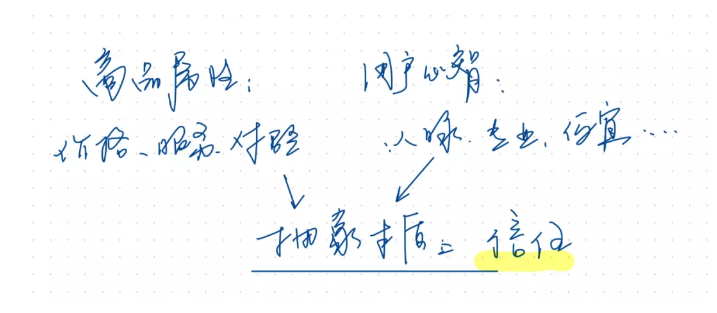 商品属性：
用户心智：
价格、服务、体验
人脉、专业、便宜……
抽象本质：信任